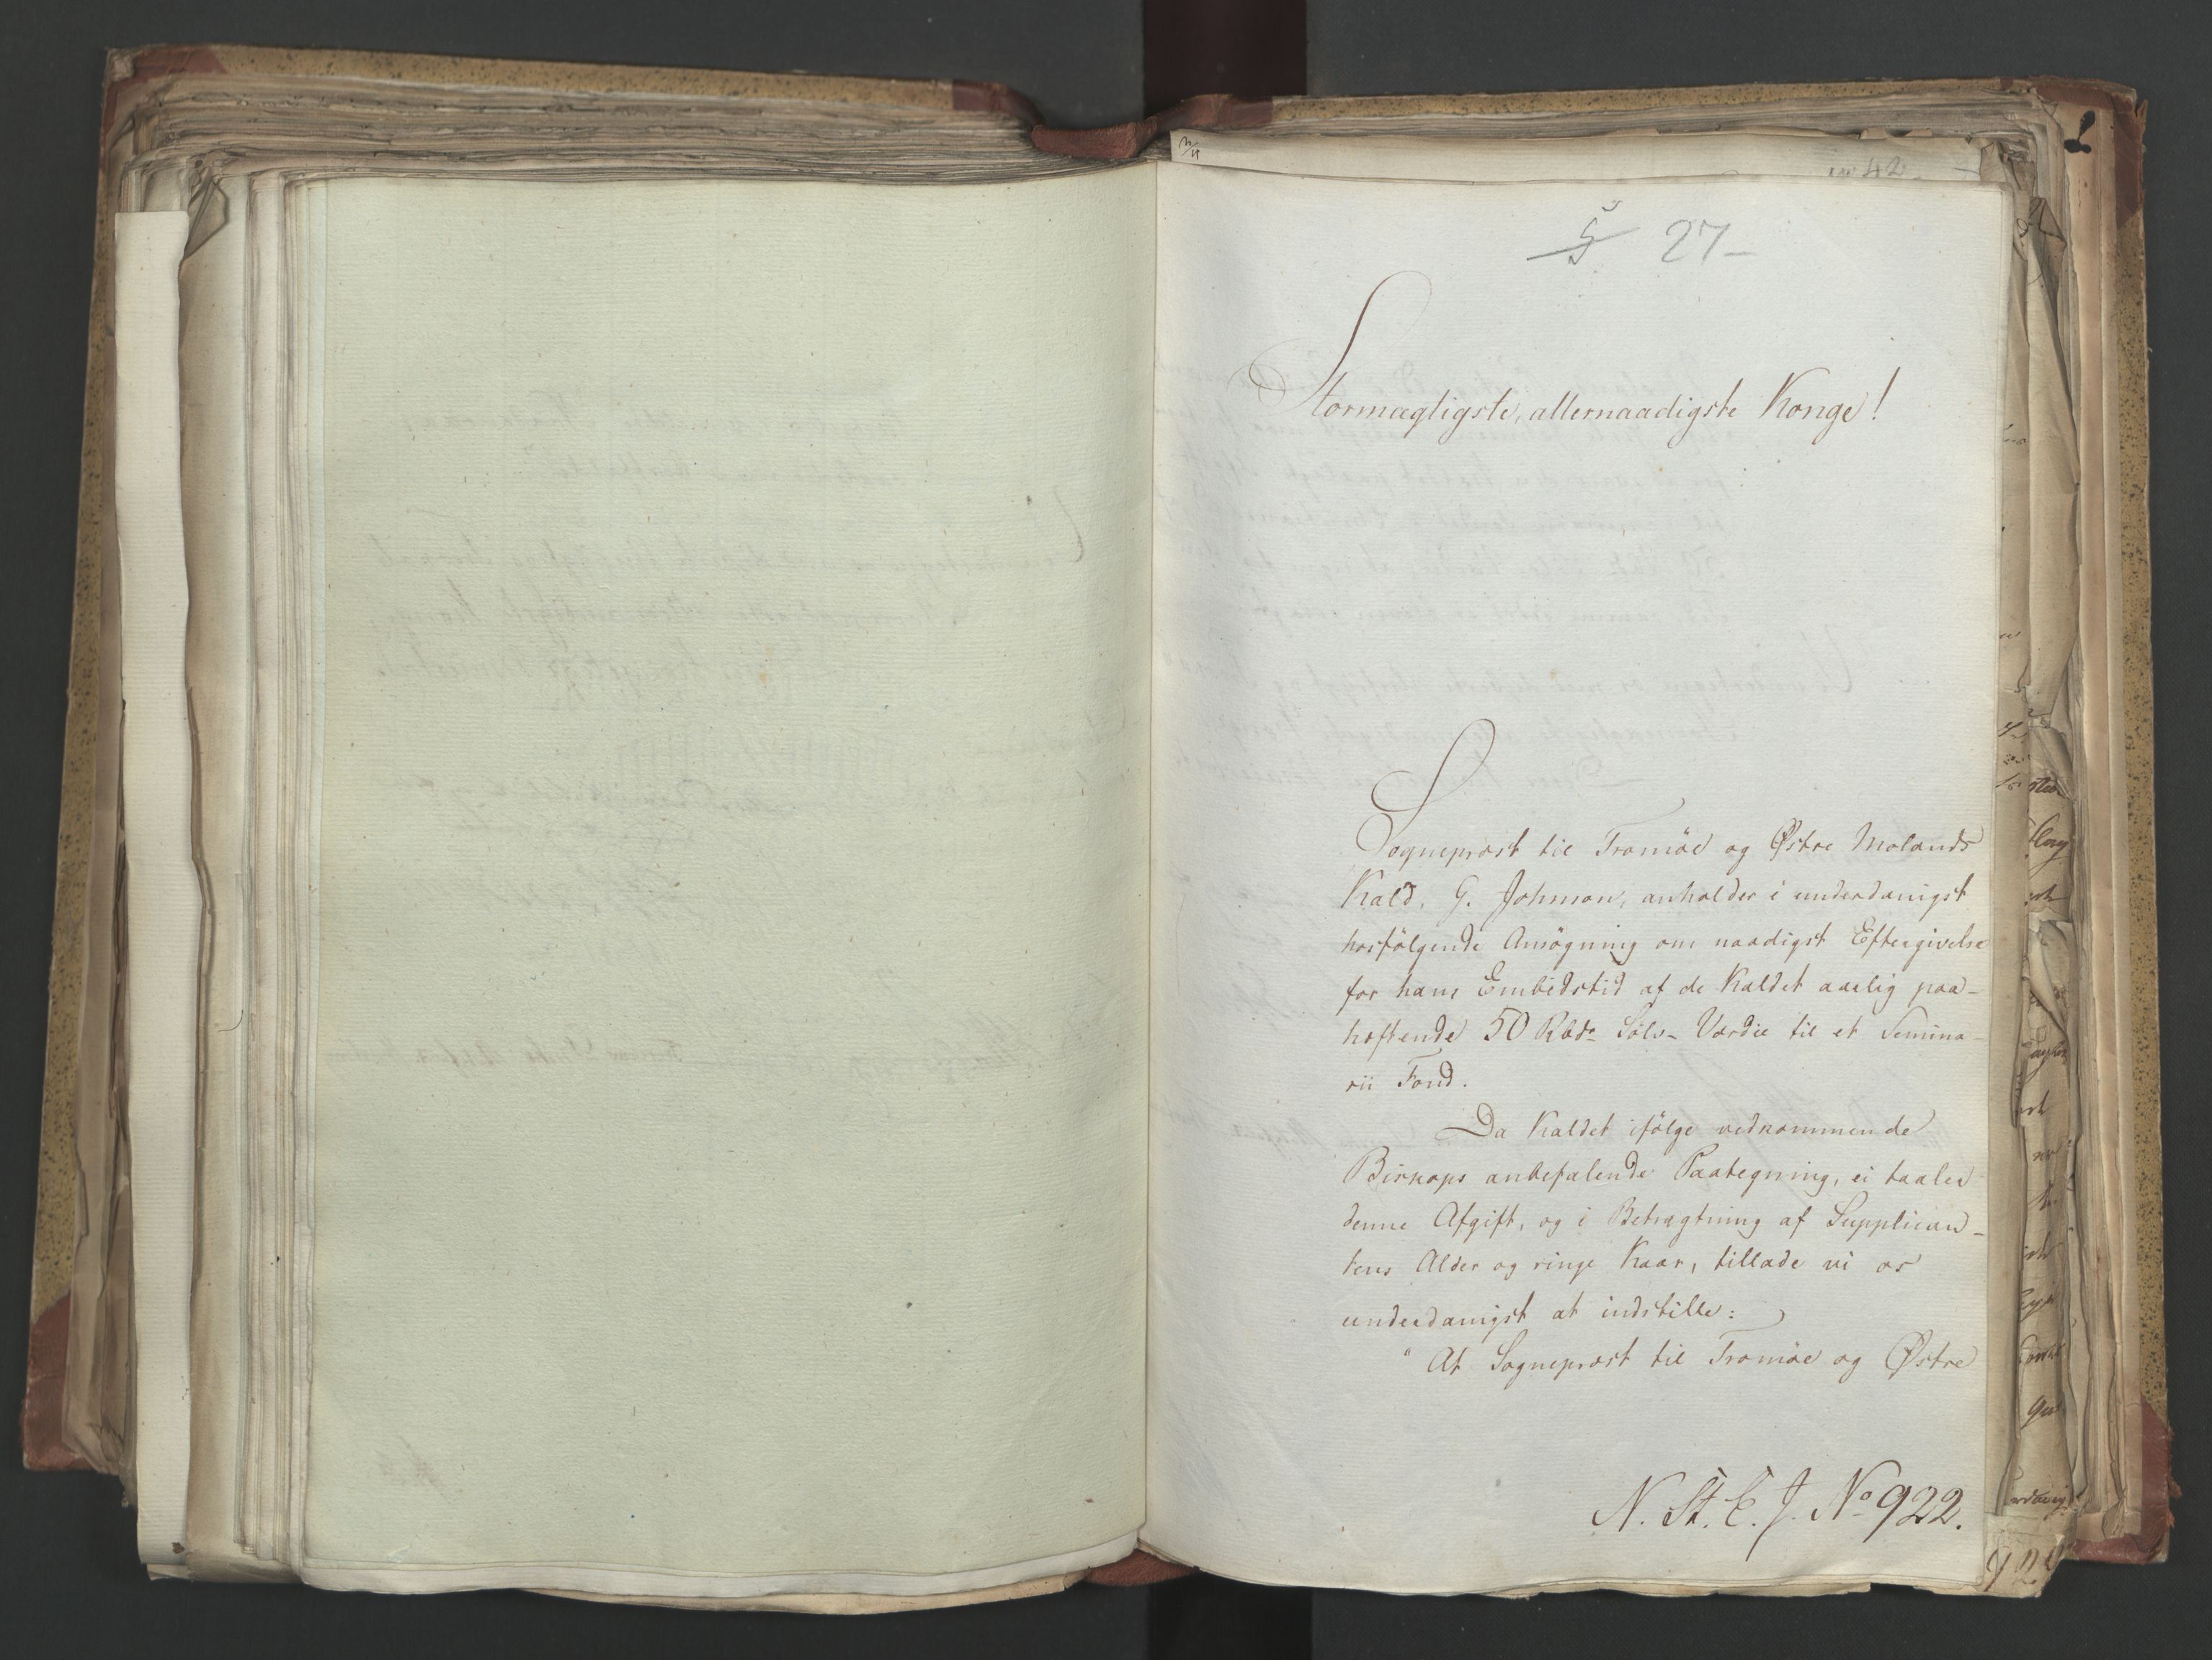 27-
Stormægtigste, allernaadigste Konge!
Sognepræst til Tromöe og Østre Molands
Kald, G. Johnson, anholder i underdanigst
hosfölgende Ansögning om naadigst Eftergivelse
for hans Embedstid af de Kaldet aarlig paa-
hæftende 50 Rbdr Sölv-Værdie til et Semina-
rii Fond.
Da Kaldet ifölge vedkommende
Biskops anbefalende Paategning, ei taaler
denne Afgift, og i Betragtning af Supplican-
tens Alder og ringe Kaar, tillade vi os
underdanigst at indstille:
" At Sognepræst til Tromöe og Østre
N. St. E. J. No 922.